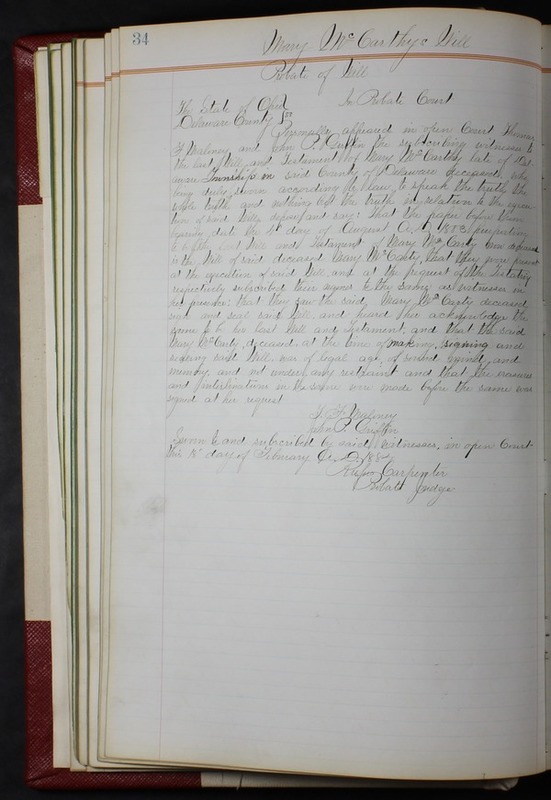 34
Mary McCarthys Will
Probate of Will
The State of Ohio
Delaware County ss
In Probate Court
Personally appeared in open Court Thomas
F Maloney and John P. Griffin the subscribing witnesses to
the last Will and Testament of Mary McCarthy late of Del
aware Township in said County of Delaware deceased, who
being duly sworn according to law, to speak the truth, the
whole truth and nothing but the truth in relation to the execu
tion of said Will, depose and say: That the paper before them
bearing date the day of August A.D. purporting
to be the Last Will and Testament of Mary McCarty now deceased
is the Will of said deceased Mary McCarty, that they were present
at the execution of said Will, and at the request of the Testatrix
respectively subscribed their names to the same as witnesses in
her presence; that they saw the said Mary McCarty deceased,
sign and seal said Will, and heard her acknowledge the
same to be her last Will and Testament, and that the said
Mary McCarty, deceased, at the time of making, signing and
sealing said Will, was of legal age, of sound mind, and
memory, and not under any restraint and that the erasures
and interlineations in the same were made before the same was
signed at her request
T. F. Maloney
John P. Griffin
Sworn to and subscribed by said witnesses, in open Court
this day of February A.D.
Carpenter
Probate Judge